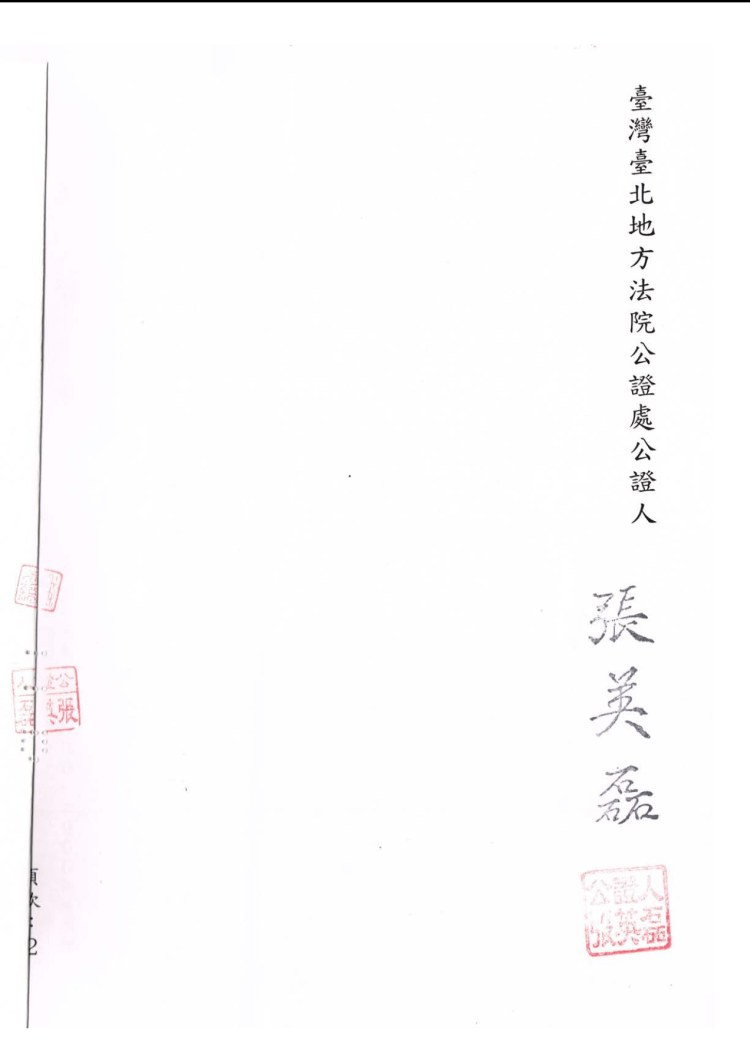 臺灣臺北地方法院公證處公證人
張英磊
公證人
張英磊
公證人
張英磊
頁次：2